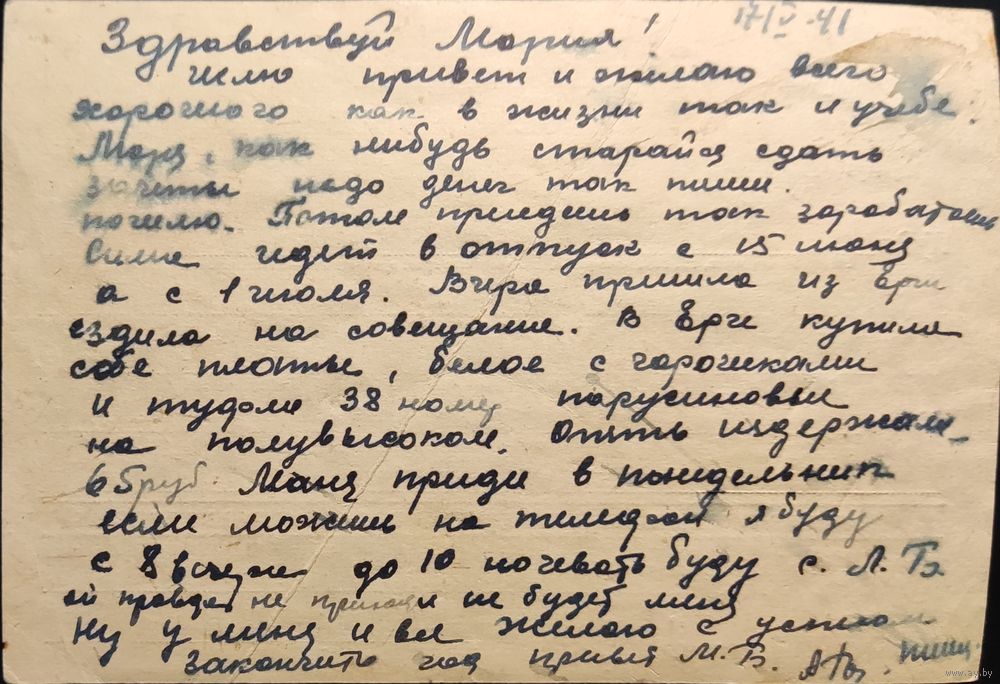 17/V-41
Здравствуй Мария!
шлю привет и желаю всего
хорошего как в жизни так и учебе.
Маня, как нибудь старайся сдать
зачеты надо денег так пиши.
пошлю. Потом приедешь так заработаешь
Сима идет в отпуск с 15 июня
а с 1 июля. Вчера пришла из Ерги
ездила на совещание. В Ерге купила
себе платье, белое с горошками
и туфли 38 номер парусиновые
на полувысоком. Опять издержала
65руб. Маня приди в понедельник
если можешь на телефон я буду
с 8 вечера до 10 ночевать буду с. Л.
ей не будет меня
Ну у меня и все желаю с успехом
закончить год привет М.Б. пиши
www.ay.by